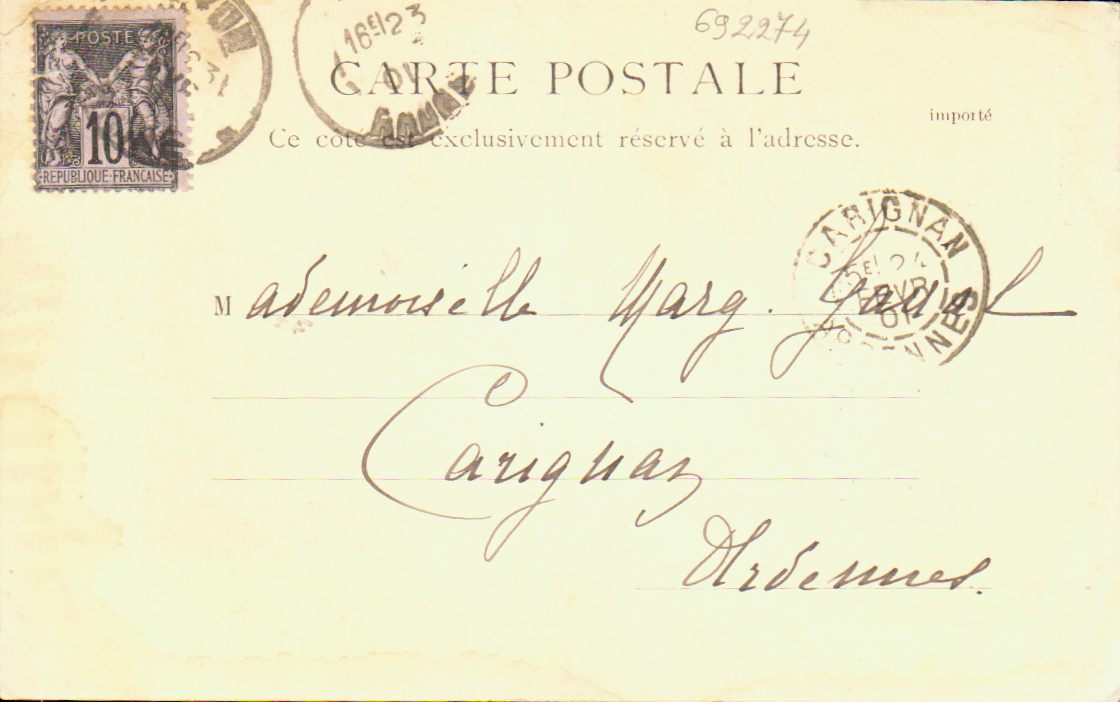 692274
POSTE
10
REPUBLIQUE FRANÇAISE
16E 23
01
CARTE POSTALE
importé
Ce côté est exclusivement réservé à l'adresse.
CARIGNAN
5E 24
FEVR
01
ARDENNES
Mademoiselle Marg.
Carignan
Ardennes.